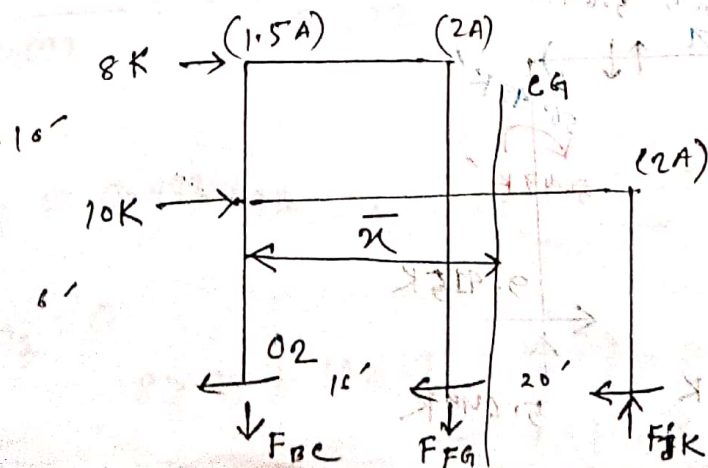 (1.5A) (2A)
8K
CG
10'
(2A)
10K
x̄
6'
02 15' 20'
F_BC F_FG F_JK